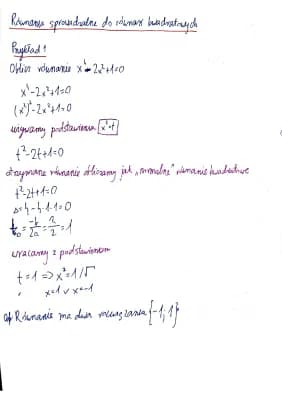 Równania sprowadzalne do równań kwadratowych
Przykład 1
Oblicz równanie x⁴-2x²+1=0
x⁴-2x²+1=0
(x²)²-2x²+1=0
używamy podstawienia x²=t
t²-2t+1=0
otrzymane równanie obliczamy jak „normalne” równanie kwadratowe
t²-2t+1=0
Δ=4-4·1·1=0
t₀=-b/2a=2/2=1
wracamy z podstawieniem
t=1 => x²=1/√
x=1 v x=-1
Równanie ma dwa rozwiązania {-1;1}